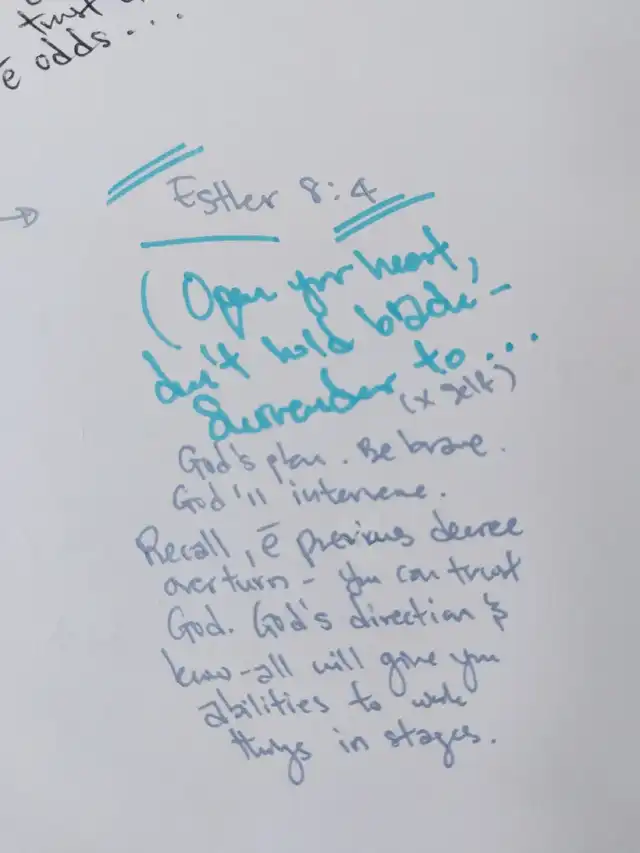 trust
ē odds...
Esther 8:4
(Open your heart,
don't hold back -
Surrender to...
(x self)
God's plan. Be brave.
God'll intervene.
Recall, ē previous decree
overturn - you can trust
God. God's direction &
know-all will give you
abilities to work
things in stages.